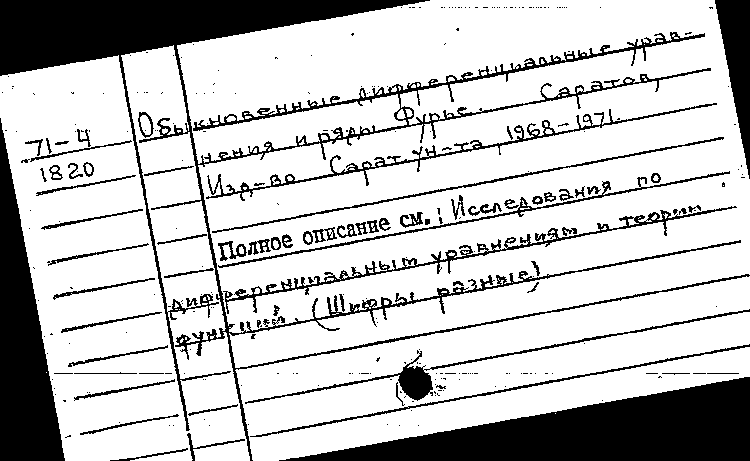 71-4
1820
Обыкновенные дифференциальные урав-
нения и ряды Фурье. Саратов,
Изд-во Сарат. ун-та, 1968-1971.
Полное описание см.: Исследования по
дифференциальным уравнениям и теории
функций. (Шифры разные)